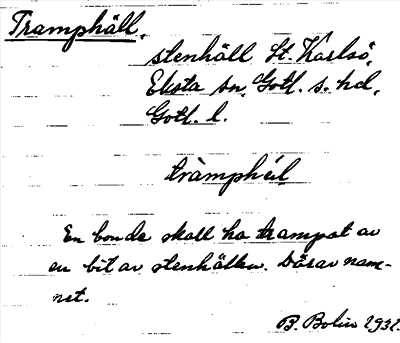 Tramphäll,
stenhäll St. Karlsö,
Eksta sn, Gotl. s. hd,
Gotl. l.
tràmphèil
En bonde skall ha trampat av
en bit av stenhällen. Därav nam-
net.
B. Bolin 1931.